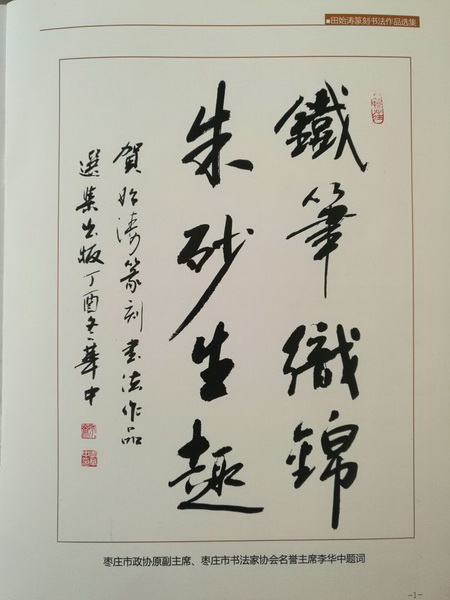 田始涛篆刻书法作品选集
鐵筆織錦
朱砂生趣
賀始濤篆刻書法作品
選集出版丁酉冬華中
枣庄市政协原副主席、枣庄市书法家协会名誉主席李华中题词
-1-